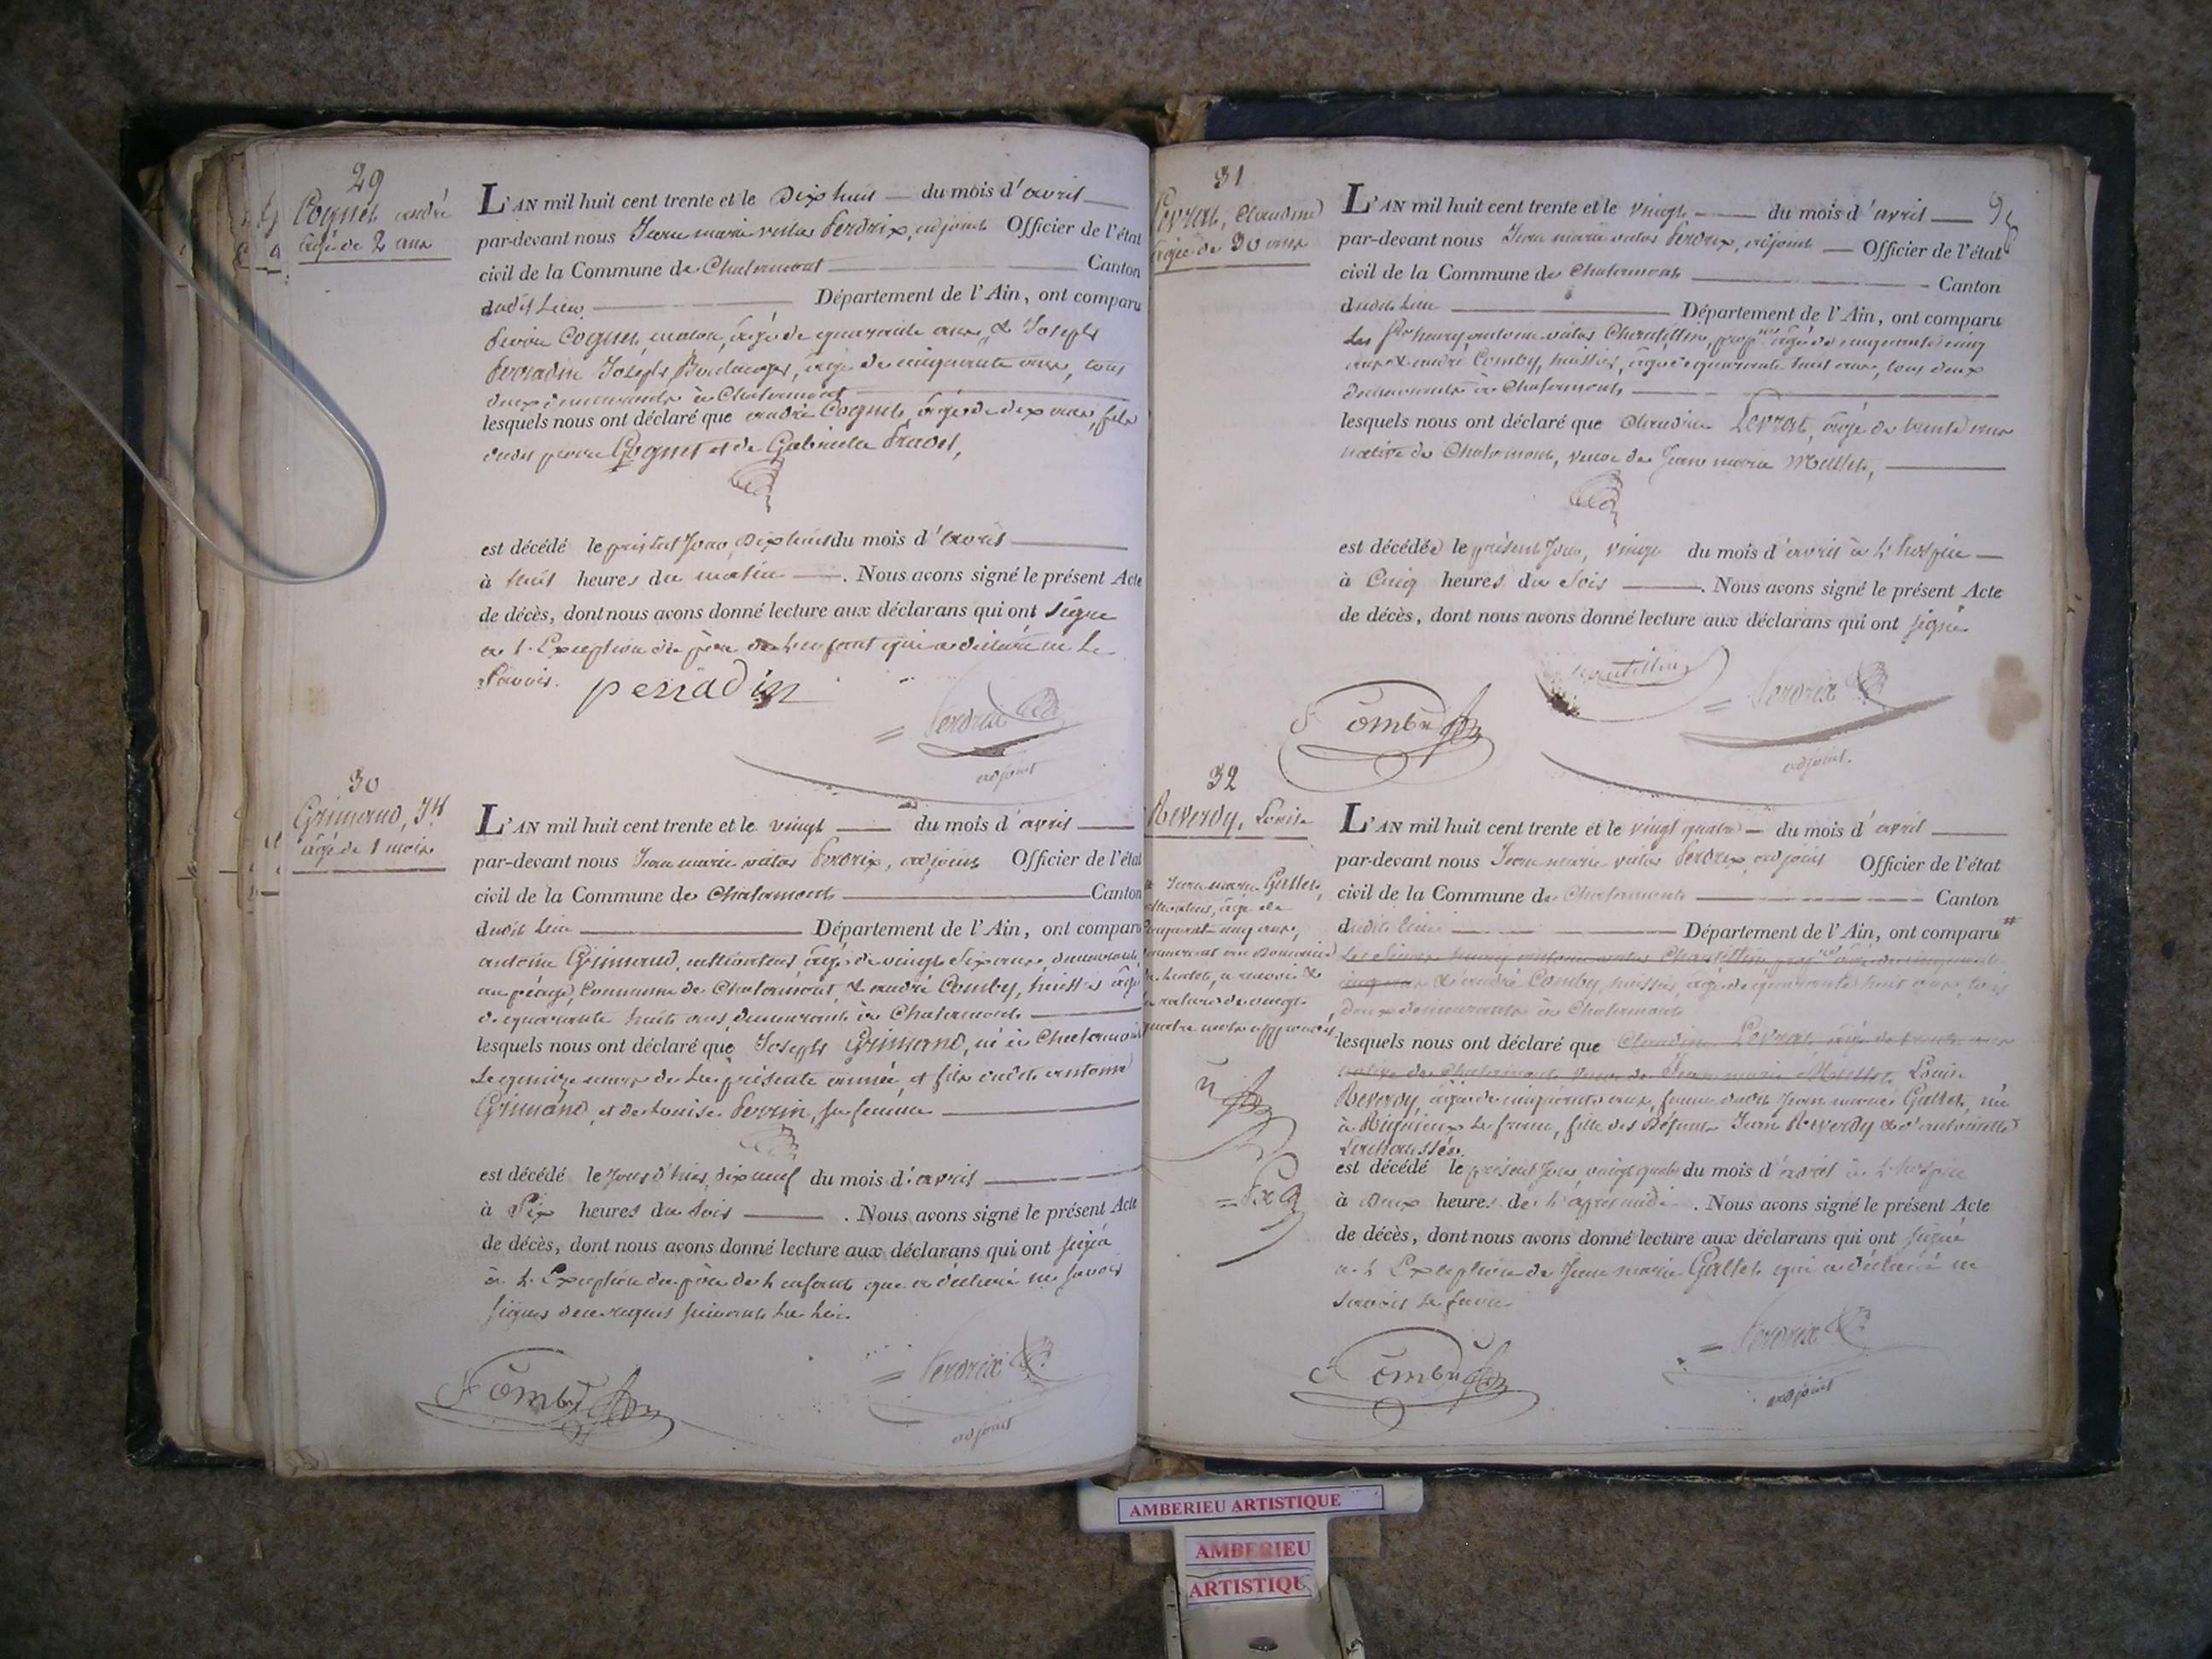 29
Cognet andré
âgé de 2 ans
L'AN mil huit cent trente et le Dix huit du mois d'avril
par-devant nous Jean marie vital Perdrix, adjoint Officier de l'état
civil de la Commune de Chalamont Canton
dudit Lieu Département de l'Ain, ont comparu
Pierre Cognet, maçon, âgé de quarante ans, & Joseph
Perradin Joseph, Boulanger, âgé de cinquante ans, tous
deux demeurants à Chalamont
lesquels nous ont déclaré que andré Cognet, âgé de dix ans, fils
dudit pierre Cognet et de Gabrielle
est décédé le présent Jour, Dix huit du mois d'avril
à huit heures du matin. Nous avons signé le présent Acte
de décès, dont nous avons donné lecture aux déclarans qui ont signé
à l'Exception du père de l'enfant qui a déclaré ne Le
Savoir.
perradin
Perdrix
adjoint
30
Grimand, Jh
âgé de 1 mois
L'AN mil huit cent trente et le vingt du mois d'avril
par-devant nous Jean marie vital Perdrix, adjoint Officier de l'état
civil de la Commune de Chalamont Canton
dudit Lieu Département de l'Ain, ont comparu
antoine Grimand, cultivateur âgé de vingt six ans, demeurant
au péage, Commune de Chalamont, & andré Comby, huissier âgé
de quarante huit ans, demeurant à Chalamont
lesquels nous ont déclaré que Joseph Grimand, né à Chalamont
Le quinze mars de La présente année, et fils dudit antoine
Grimand, et de Louise Perrin, sa femme
est décédé le Jour d'hier, dix neuf du mois d'avril
à Six heures du soir. Nous avons signé le présent Acte
de décès, dont nous avons donné lecture aux déclarans qui ont signé
à L'Exception du père de l'enfant qui a déclaré ne savoir
signer de ce requis suivant La Loi.
Comby
Perdrix
adjoint
31
Levrat, Claudine
âgée de 30 ans
L'AN mil huit cent trente et le vingt du mois d'avril
par-devant nous Jean marie vital Perdrix, adjoint Officier de l'état
civil de la Commune de Chalamont Canton
dudit Lieu Département de l'Ain, ont comparu
Les Srs henry antoine vital Chantillon, âgé de cinquante cinq
ans & andré Comby, huissier, âgé de quarante huit ans, tous deux
demeurants à Chalamont
lesquels nous ont déclaré que Claudine Levrat, âgée de trente ans
native de Chalamont, veuve de Jean marie Meillet,
est décédée le présent Jour, vingt du mois d'avril à L'hospice
à Cinq heures du Soir. Nous avons signé le présent Acte
de décès, dont nous avons donné lecture aux déclarans qui ont signé
Comby
Perdrix
adjoint.
32
Reverdy, Louise
Jean marie Gallet,
cultivateur, âgé de
cinquante cinq ans,
L'AN mil huit cent trente et le vingt quatre du mois d'avril
par-devant nous Jean marie vital Perdrix, adjoint Officier de l'état
civil de la Commune de Chalamont Canton
dudit Lieu Département de l'Ain, ont comparu
& andré Comby, huissier, âgé de quarante huit ans, tous
deux demeurants à Chalamont
lesquels nous ont déclaré que Claudine Levrat, âgée de trente ans
native de Chalamont veuve de Jean marie Meillet, Louise
Reverdy, âgée de cinquante ans, femme dudit Jean marie Gallet, née
à Rignieux Le franc, fille des Défunts Jean Reverdy & d'antoinette
est décédé le présent Jour, vingt quatre du mois d'avril à L'hospice
à deux heures de L'après midi. Nous avons signé le présent Acte
de décès, dont nous avons donné lecture aux déclarans qui ont signé
à L'Exception de Jean marie Gallet qui a déclaré ne
savoir Le faire.
Comby
Perdrix
adjoint
AMBERIEU ARTISTIQUE
AMBERIEU
ARTISTIQU